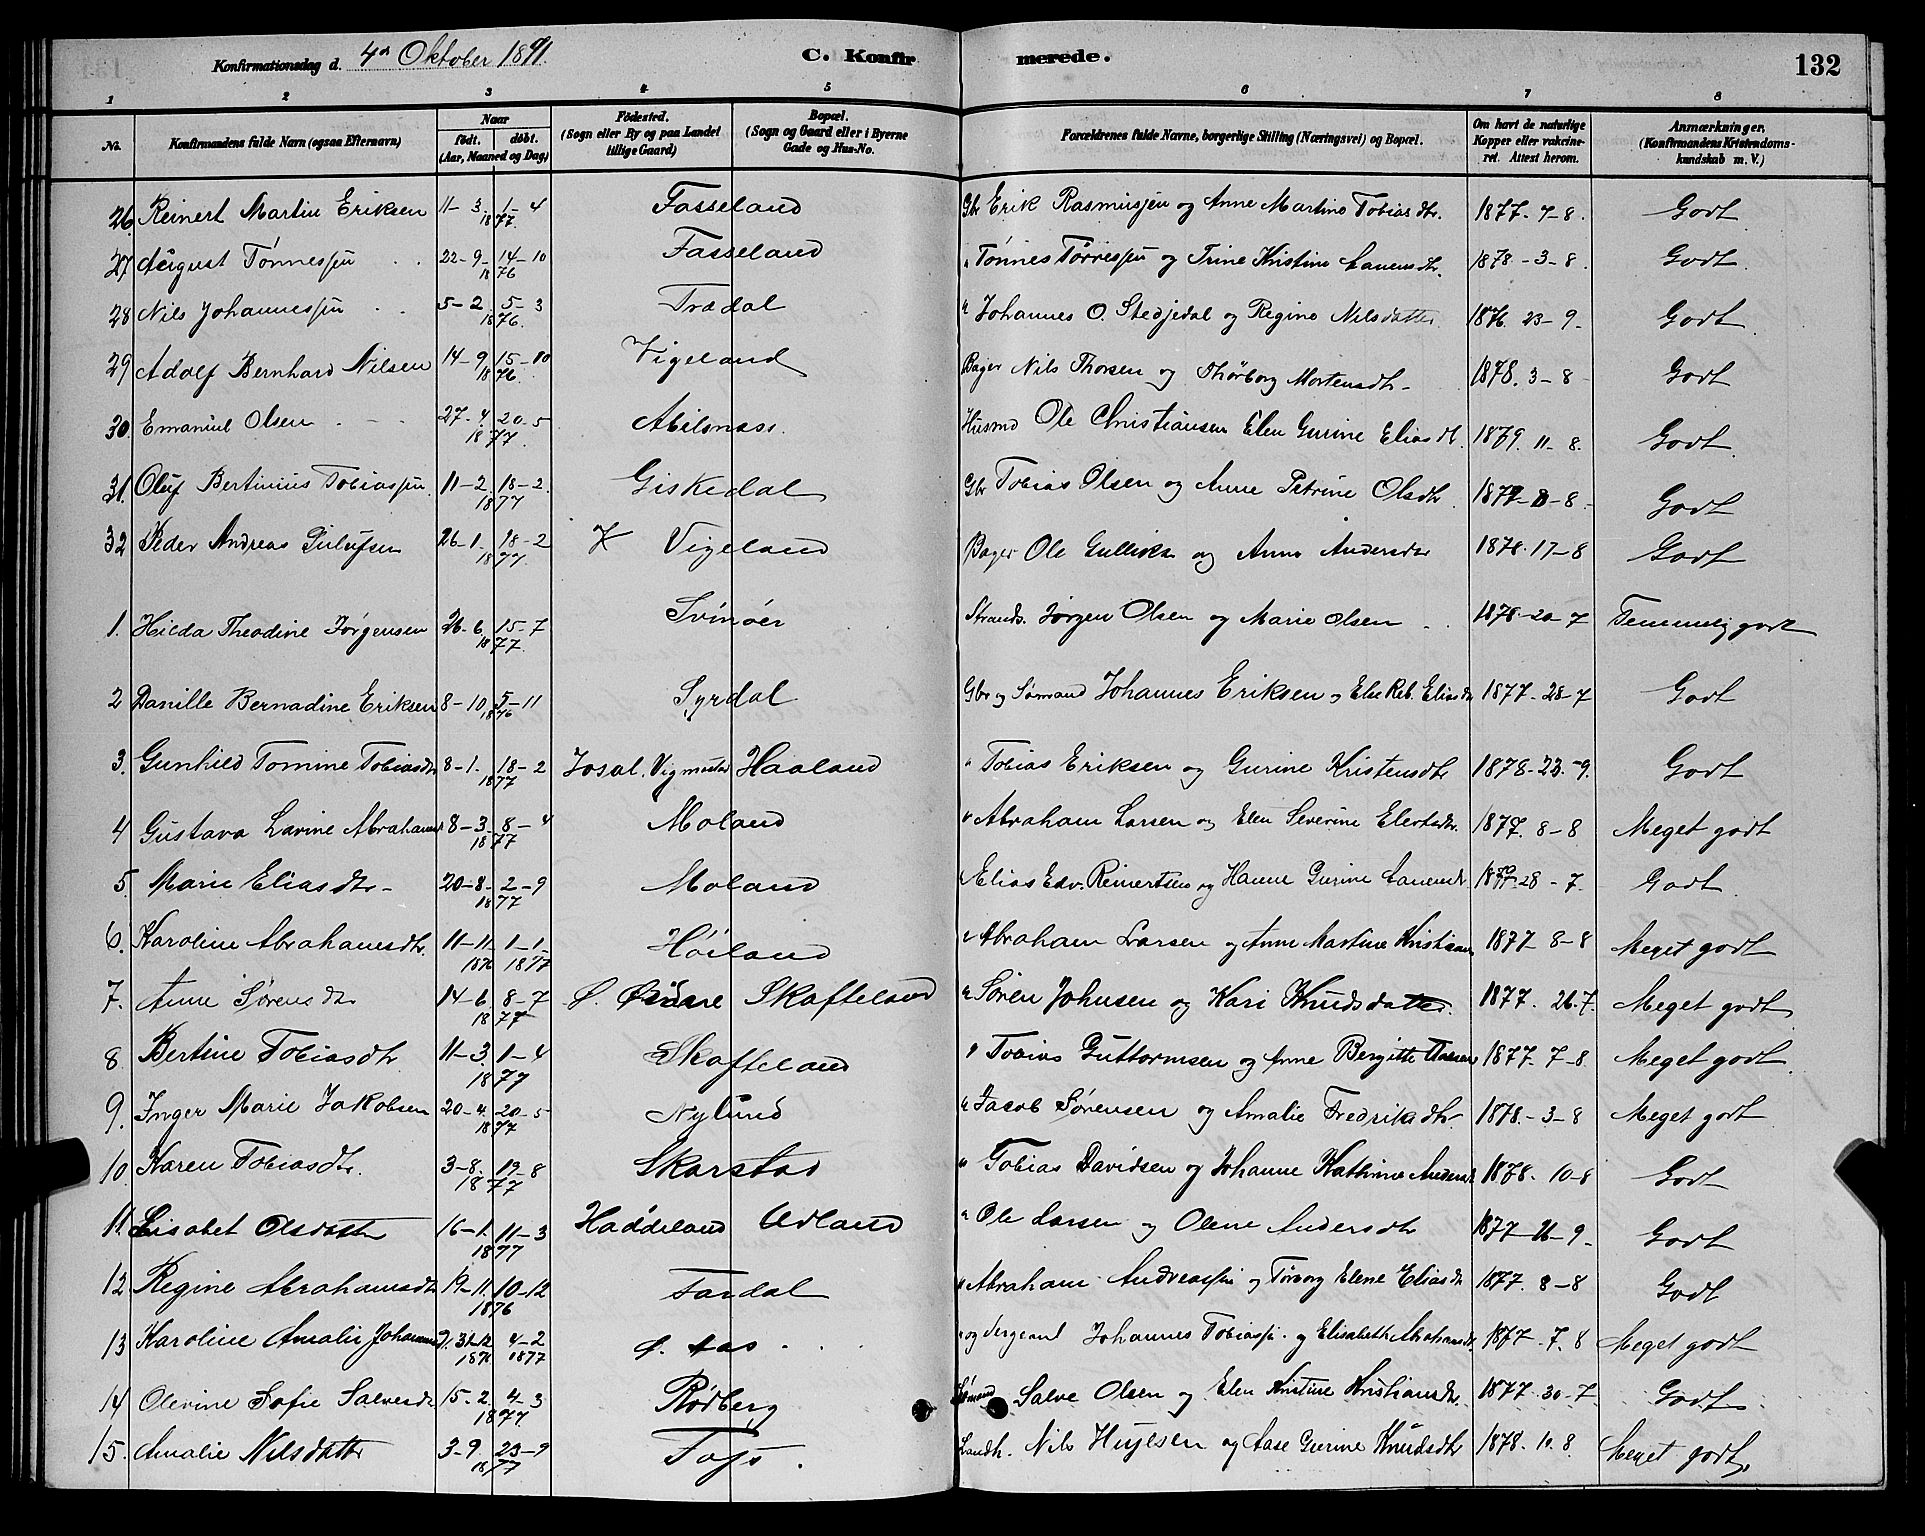 Konfirmationsdag d. 4de Oktober 1891. C. Konfir merede. 132
1 2 3 4 5 6 7 8
No. Konfirmandens fulde Navn (ogsaa Efternavn) Naar født. døbt. (Aar, Maaned og Dag) Fødested. (Sogn eller By og paa Landet tillige Gaard) Bopæl. (Sogn og Gaard eller i Byerne Gade og Hus-No. Forældrenes fulde Navne, borgerlige Stilling (Næringsvei) og Bopæl. Om havt de naturlige Kopper eller vakcineret. Attest herom. Anmærkninger. (Konfirmandens Kristendomskundskab m. V.)
26. Reinert Martin Eriksen 11-3 1-4 1877. Fasseland Gbr Erik Rasmussen og Anne Martine Tobiasdtr. 1877-7-8. Godt
27 August Tønnessen 22-9- 14-10 1876 Fasseland " Tønnes Tørressen og Trine Kristine Lauensdtr. 1878-3-8. Godt.
28 Nils Johannessen 5-2 5-3 1876. Trædal " Johannes O. Stedjedal og Regine Nilsdatter 1876. 23-9. Godt
29 Adolf Bernhard Nilsen 14-9 15-10 1876. Vigeland Bager Nils Thorsen og Thørborg Mortensdtr- 1878. 3-8- Godt
30. Emanuel Olsen 27-4. 20-5 1877. Abilsnæss. Husmd Ole Christiansen Elen Gurine Eliasdt. 1879. 11-8. Godt
31. Oluf Bertinius Tobiassen. 11-2. 18-2. 1877 Giskedal Gbr Tobias Olsen og Anne Petrine Olsdtr. 1877-8-8. Godt
32 Peder Andreas Gulufsen 26-1. 18-2 1877. K Vigeland Bager Ole Gulliks og Anne Andersdtr 1878. 17-8 Godt
1. Hilda Theodine Jørgensen 26-6. 15-7 1877. Svinöer Strands. Jørgen Olsen og Marie Olsen 1878-20-7 Temmelig godt
2 Danille Bernadine Eriksen 8-10 5-11 1876 Syrdal Gbr og Sømand Johannes Eriksen og Else Reb. Eliasdtr 1877-28-7 Godt
3. Gunhild Tomine Tobiasdtr 8-1. 18-2 1877 Josal. Vigmostad Haaland " Tobias Eriksen og Gurine Kristensdtr 1878-23.-9. Godt
4 Gustava Lavine Abrahams 8-3. 8-4 1877 Moland " Abraham Larsen og Elen Severine Elertsdtr. 1877. 8-8 Meget godt
5. Marie Eliasdtr- 20-8- 2-9 1877 Moland " Elias Edv. Reinertsen og Hanne Gurine Lauensdtr 28-7. Godt
6. Karoline Abrahamsdtr. 11-11. 1-1- 1876 1877 Höiland " Abraham Larsen og Anne Martine Kristians 1877 8-8 Meget godt
7. Anne Sørensdtr 14-6 8-7 1877 Ø. Skofteland " Søren Johnsen og Kari Knudsdatter. 1877. 26.7. Meget godt
8 Bertine Tobiasdtr 11-3. 1-4 1877 Skofteland " Tobias Guttormsen og Anne Bergitte 1877. 7-8. Meget godt.
9. Inger Marie Jakobsen 20-4. 20-5 1877 Nylund " Jacob Sørensen og Amalie Fredriksdtr. 1878.-3-8 Meget godt
10. Karen Tobiasdtr. 3-8. 19-8 1877 Skorstad " Tobias Davidsen og Johanne Kathrine Andersdt 1878. 10-8 Godt
11. Lisabet Olsdatter 16-1. 11-3 1877 Haddeland Udland " Ole Larsen og Olene Andersdtr 1877-26-9- Godt
12. Regine Abrahamsdtr 19-11. 10-12 1876 Fardal " Abraham Andreassen og Tøborg Elene Eliasdtr 1877. 8-8 Godt
13 Karoline Amalie Johannes 31-12 4-2 1876 1877 Ø. Aas " og Sergeant Johannes Tobiass. og Elisabeth Abrahamsdtr. 1877-7.8 Meget godt
14 Olevine Sofie Salvesdtr 15-2. 4-3 1877 Rödberg Sømand Salve Olsen og Elen Kristine Kristiansdtr. 1877-30-7. Godt
15. Amalie Nilsdatter 3-9. 23-9 1877 Foss. Landh. Nils Hujesen og Aase Gurine Knudsdtr 1878. 10. 8. Meget godt.